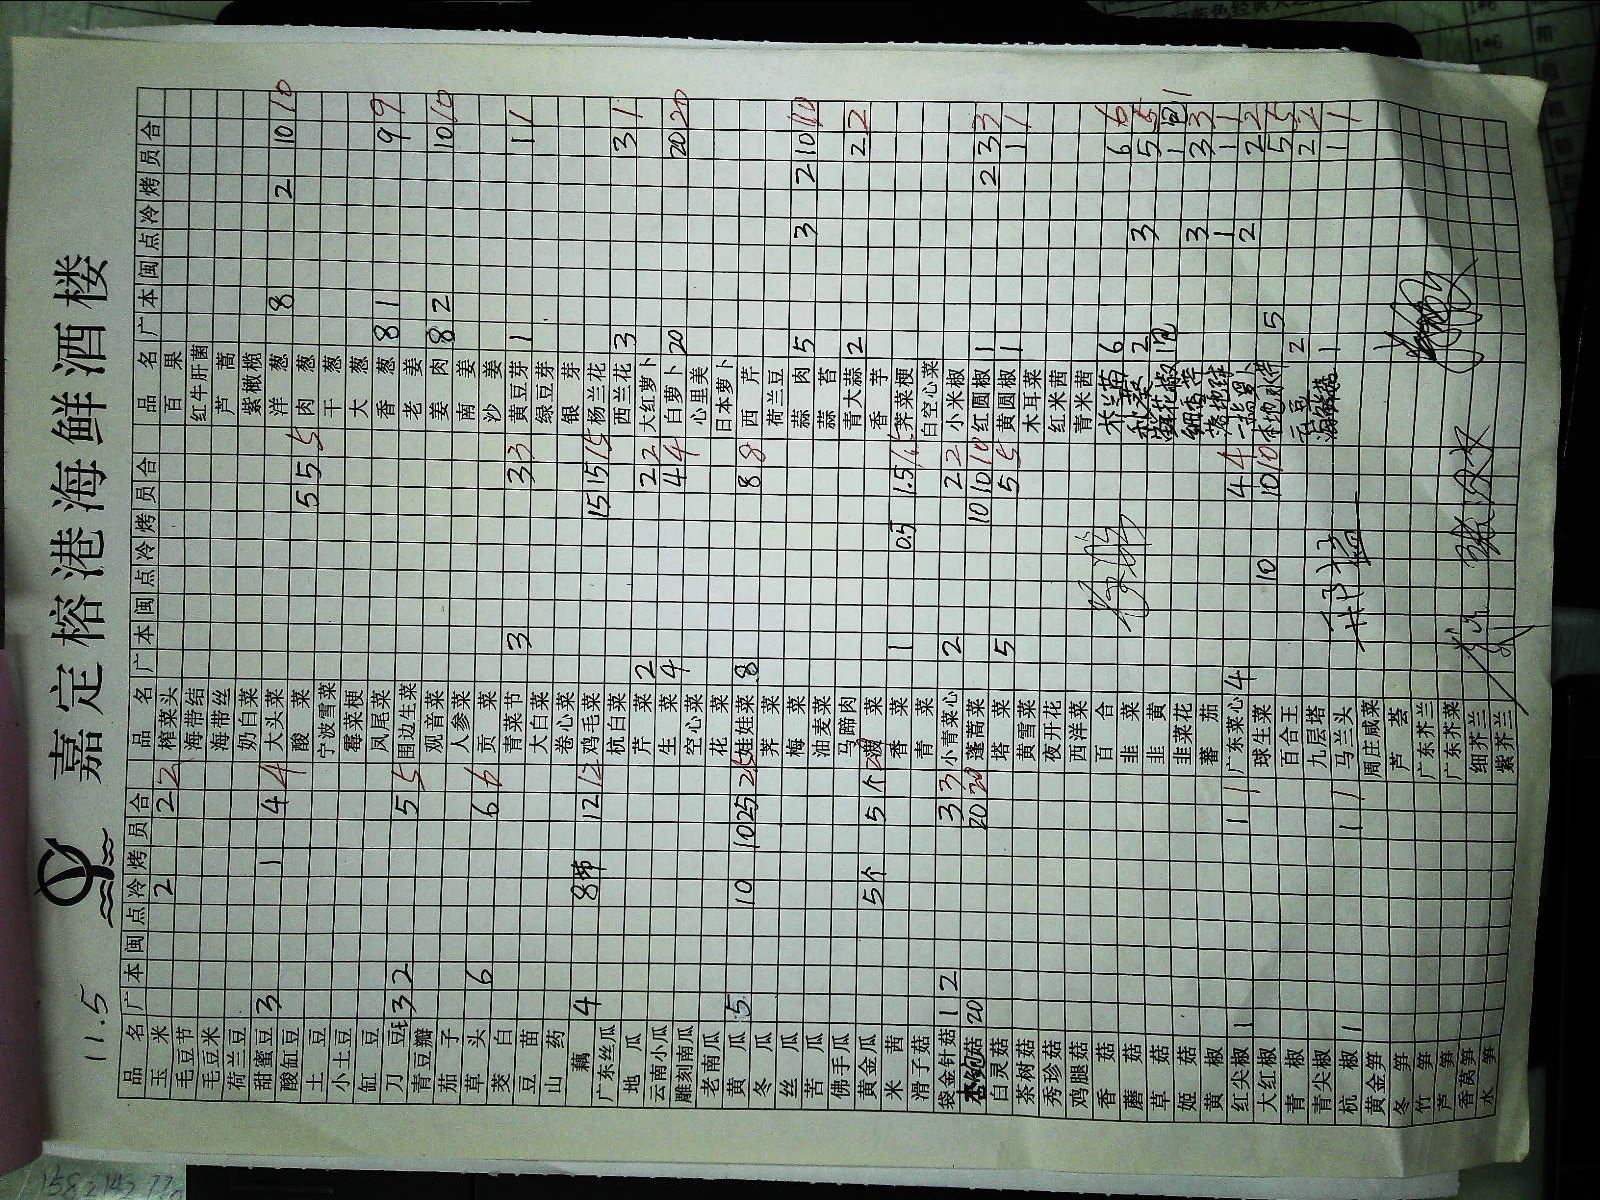 嘉定榕港海鲜酒楼
11.5
品名 广 本 闽 点 冷 烤 员 合 品名 广 本 闽 点 冷 烤 员 合 品名 广 本 闽 点 冷 烤 员 合
玉米 2 2 2 榨菜头 百果
毛豆节 海带结 红牛肝菌
毛豆米 海带丝 芦蒿
荷兰豆 奶白菜 紫橄榄
甜蜜豆 3 1 4 4 大头菜 洋葱 8 2 10 10
酸缸豆 酸菜 5 5 5 肉葱
土豆 宁波雪菜 干葱
小土豆 霉菜梗 大葱
缸豆 凤尾菜 香葱 8 1 9 9
刀豆 3 2 5 5 围边生菜 老姜
青豆瓣 观音菜 姜肉 8 2 10 10
茄子 人参菜 南姜
草头 6 6 6 贡菜 沙姜
茭白 青菜节 3 3 3 黄豆芽 1 1 1
豆苗 大白菜 绿豆芽
山药 卷心菜 银芽
藕 4 8节 12 12 鸡毛菜 15 15 15 杨兰花
广东丝瓜 杭白菜 西兰花 3 3 1
地瓜 芹菜 2 2 2 大红萝卜
云南小瓜 生菜 4 4 4 白萝卜 20 20 20
雕刻南瓜 空心菜 心里美
老南瓜 花菜 日本萝卜
黄瓜 5 10 10 25 25 娃娃菜 8 8 8 西芹
冬瓜 荠菜 荷兰豆
丝瓜 梅菜 蒜肉 5 3 2 10 10
苦瓜 油麦菜 蒜苔
佛手瓜 马蹄肉 青大蒜 2 2 2
黄金瓜 5个 5个 菠菜 香芋
米茜 香菜 1 0.5 1.5 荠菜梗
滑子菇 青菜 白空心菜
袋金针菇 1 2 3 3 小青菜心 2 2 2 小米椒
杏鲍菇 20 20 20 蓬蒿菜 10 10 10 红圆椒 1 2 3 3
白灵菇 塔菜 5 5 5 黄圆椒 1 1 1
茶树菇 黄雪菜 木耳菜
秀珍菇 夜开花 红米西
鸡腿菇 西洋菜 青米西
香菇 百合 6 6 6
蘑菇 韭菜 2 3 5 5
草菇 韭黄 1包 1 1包
姬菇 韭菜花 细香芹 3 3 3
黄椒 蕃茄 1 1 1
红尖椒 1 1 1 广东菜心 4 4 4 2 2 2
大红椒 球生菜 10 10 10 本地水芹 5 5 5
青椒 百合王 2 2 2
青尖椒 九层塔 1 1 1
杭椒 1 1 1 马兰头
黄金笋 周庄咸菜
冬笋 芦荟
竹笋 广东芥兰
芦笋 广东芥菜
香莴笋 细芥兰
水笋 紫芥兰